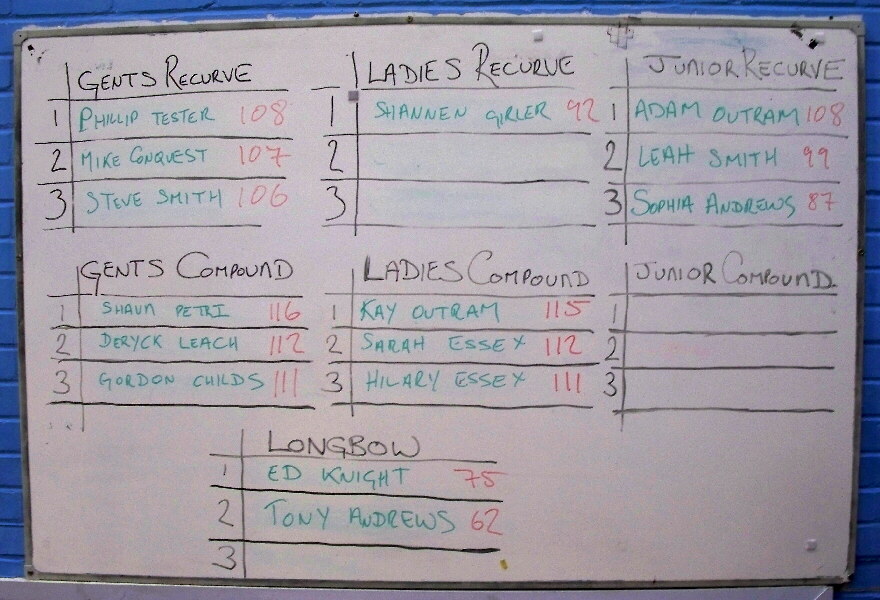 GENTS RECURVE
1 PHILLIP TESTER 108
2 MIKE CONQUEST 107
3 STEVE SMITH 106
LADIES RECURVE
1 SHANNEN GIRLER 92
2
3
JUNIOR RECURVE
1 ADAM OUTRAM 108
2 LEAH SMITH 99
3 SOPHIA ANDREWS 87
GENTS COMPOUND
1 SHAUN PETRI 116
2 DERYCK LEACH 112
3 GORDON CHILDS 111
LADIES COMPOUND
1 KAY OUTRAM 115
2 SARAH ESSEX 112
3 HILARY ESSEX 111
JUNIOR COMPOUND
1
2
3
LONGBOW
1 ED KNIGHT 75
2 TONY ANDREWS 62
3